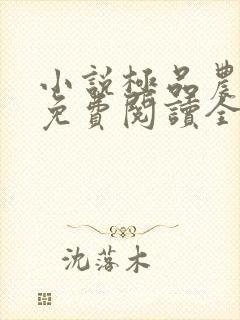 小說極品農
免費閱讀全
沈落木